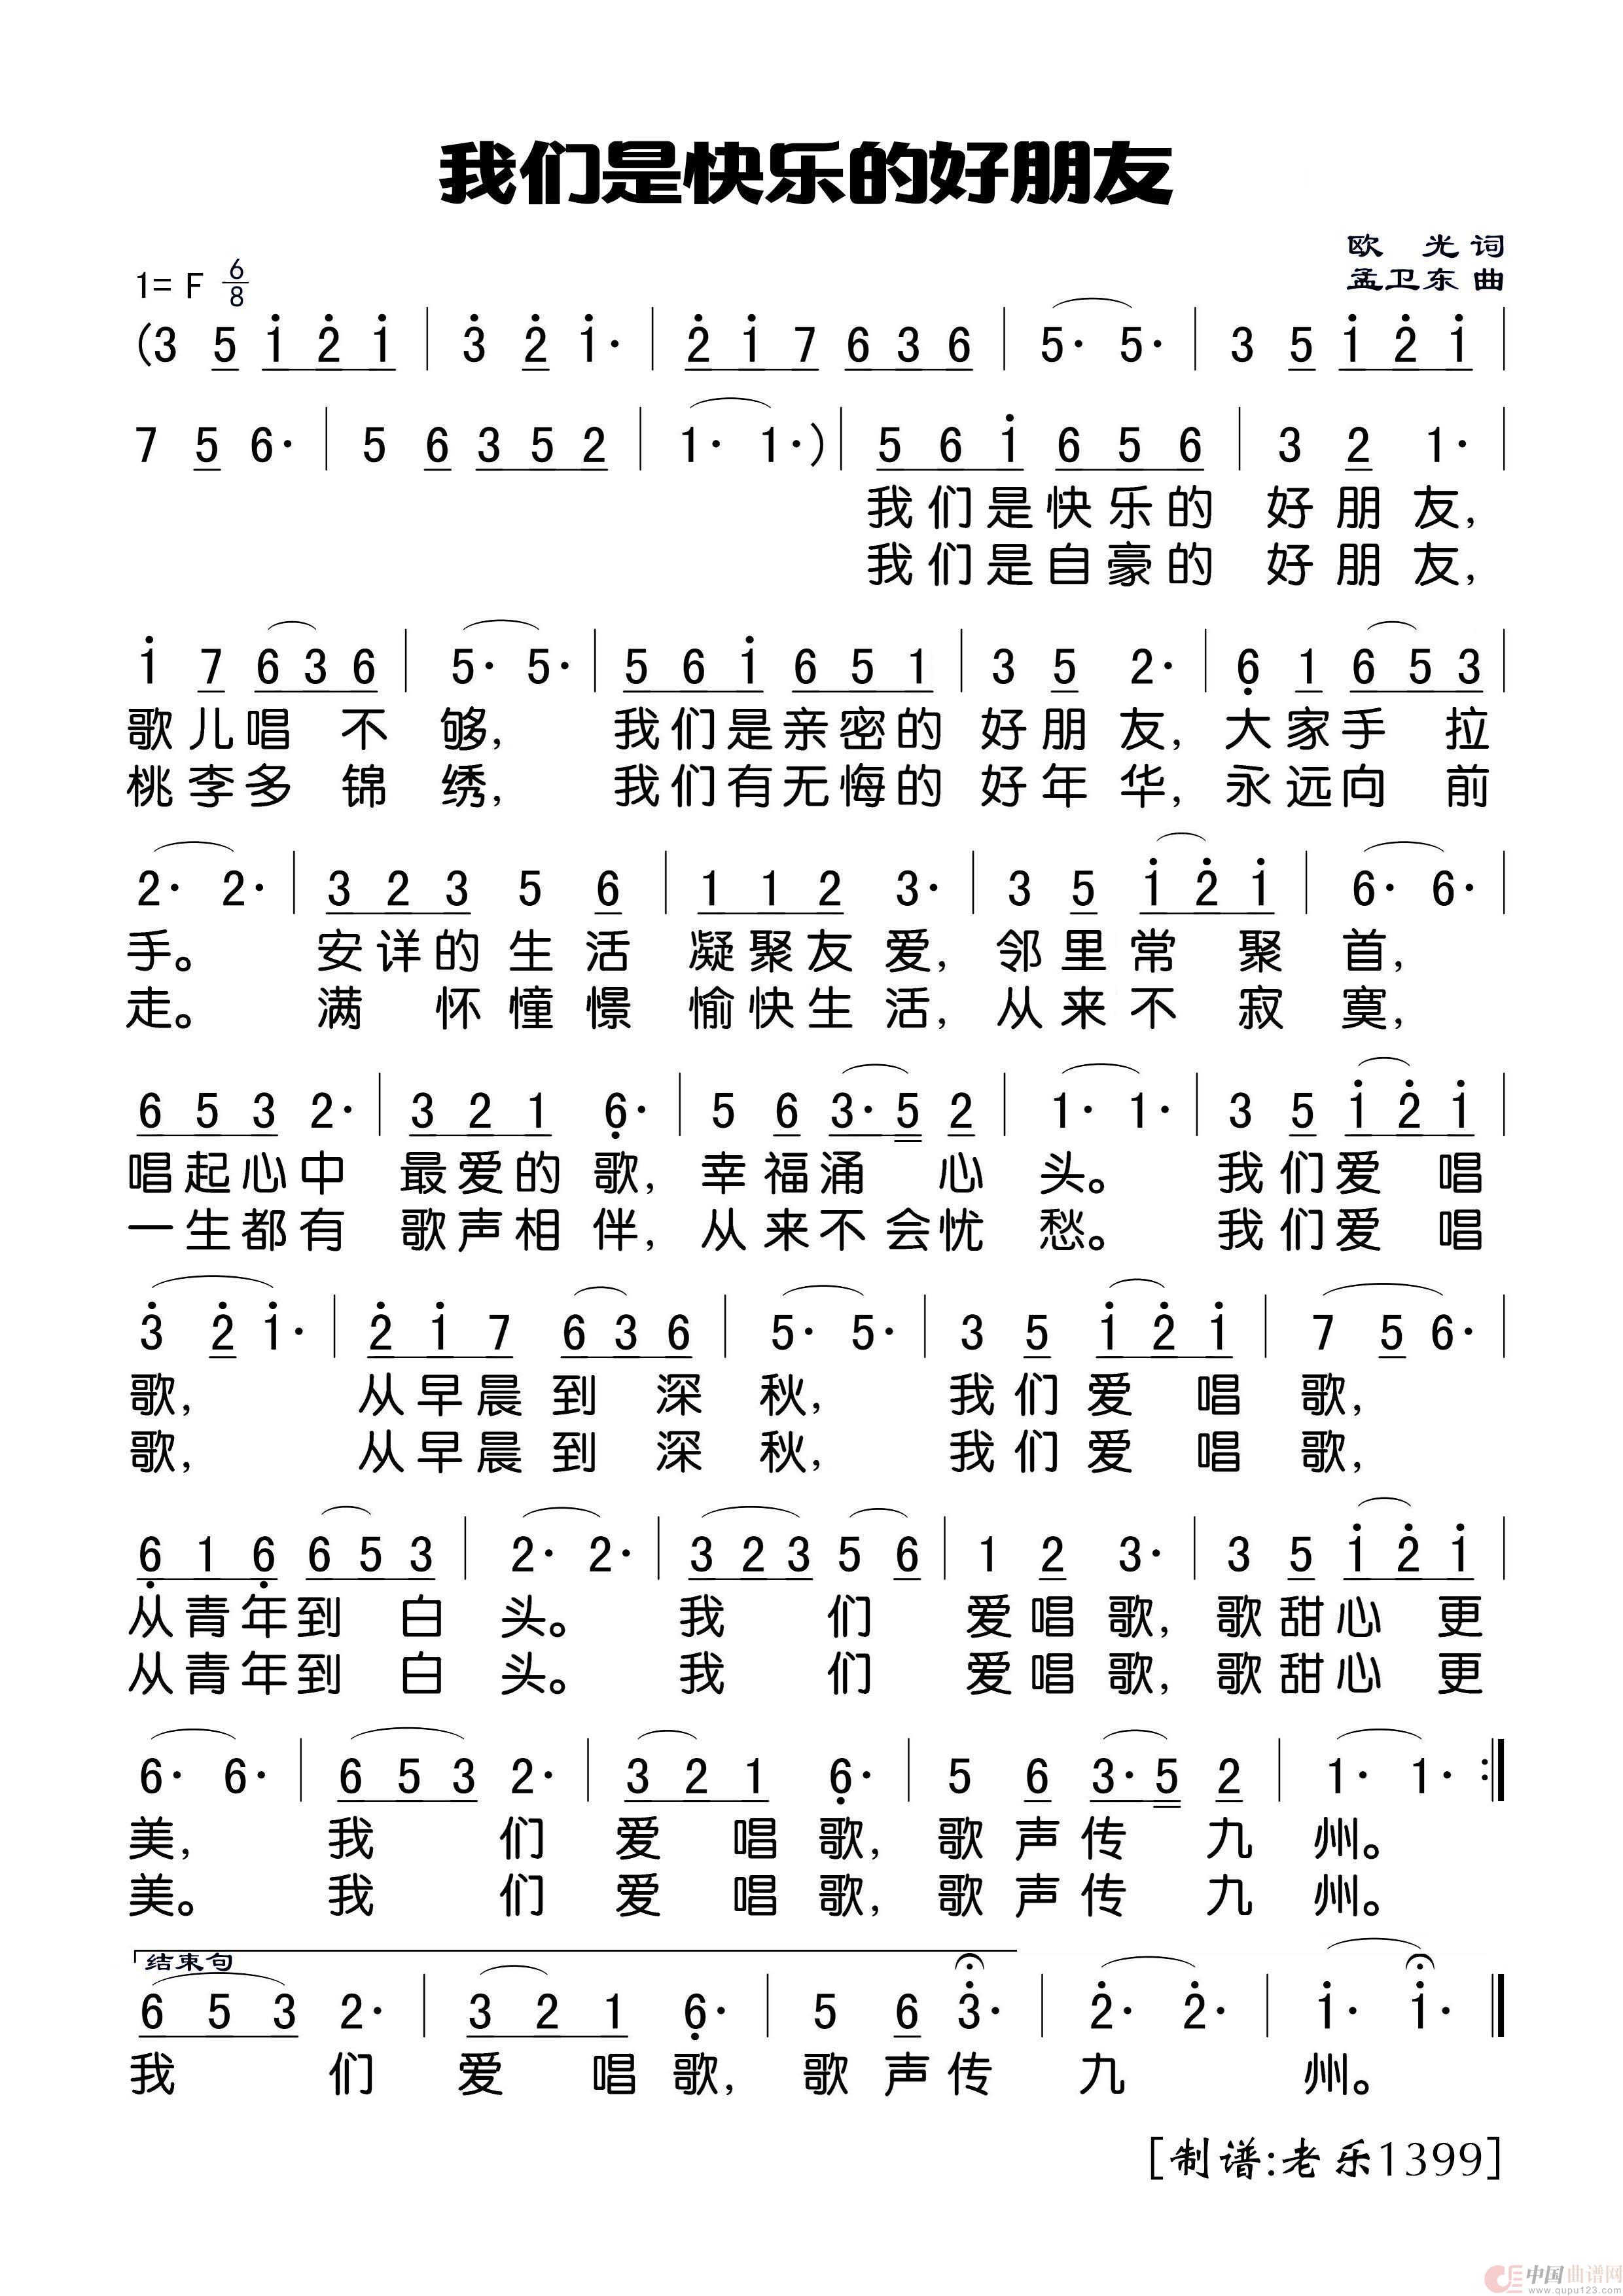 我们是快乐的好朋友
欧 光 词
1= F 6/8
孟卫东 曲
(3 5 i 2 i | 3 2 i· | 2 i 7 6 3 6 | 5· 5· | 3 5 i 2 i |
7 5 6· | 5 6 3 5 2 | 1· 1·) | 5 6 i 6 5 6 | 3 2 1· |
我们是快乐的 好朋友,
我们是自豪的 好朋友,
i 7 6 3 6 | 5· 5· | 5 6 i 6 5 1 | 3 5 2· | 6 1 6 5 3 |
歌儿唱不够, 我们是亲密的 好朋友, 大家手拉
桃李多锦绣, 我们有无悔的 好年华, 永远向前
2· 2· | 3 2 3 5 6 | 1 1 2 3· | 3 5 i 2 i | 6· 6· |
手。 安详的生活 凝聚友爱, 邻里常聚首,
走。 满怀憧憬 愉快生活, 从来不寂寞,
6 5 3 2· | 3 2 1 6· | 5 6 3· 5 2 | 1· 1· | 3 5 i 2 i |
唱起心中 最爱的歌, 幸福涌心头。 我们爱唱
一生都有 歌声相伴, 从来不会忧愁。 我们爱唱
3 2 i· | 2 i 7 6 3 6 | 5· 5· | 3 5 i 2 i | 7 5 6· |
歌, 从早晨到深秋, 我们爱唱歌,
歌, 从早晨到深秋, 我们爱唱歌,
6 1 6 6 5 3 | 2· 2· | 3 2 3 5 6 | 1 2 3· | 3 5 i 2 i |
从青年到白头。 我们 爱唱歌, 歌甜心更
从青年到白头。 我们 爱唱歌, 歌甜心更
6· 6· | 6 5 3 2· | 3 2 1 6· | 5 6 3· 5 2 | 1· 1· :|
美, 我们爱唱歌, 歌声传九州。
美。 我们爱唱歌, 歌声传九州。
结束句
6 5 3 2· | 3 2 1 6· | 5 6 3· | 2· 2· | i· i· |
我们爱唱歌, 歌声传九州。
[制谱:老乐1399]
中国曲谱网
www.qupu123.com